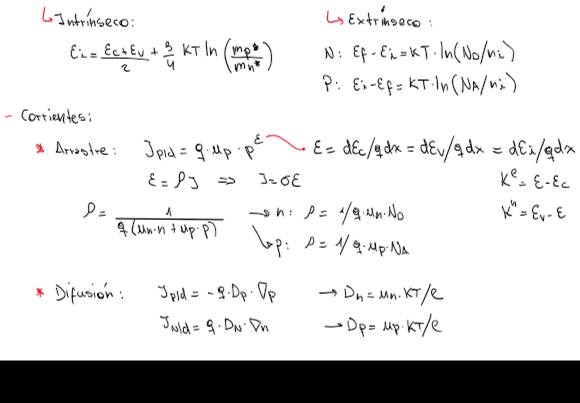 ↳ Intrínseco:
↳ Extrínseco:
Ei = Ec+Ev/2 + 3/4 KT ln (mp*/mn*)
N: Ef - Ei = KT · ln(ND/ni)
P: Ei - Ef = KT · ln(NA/ni)
- Corrientes:
* Arrastre: Jp|d = q · μp · p ε
ε = dEc/qdx = dEv/qdx = dEi/qdx
ε = ρJ ⇒ J = σε
K^e = E - Ec
ρ = 1/q(μn·n + μp·p)
→ n: ρ = 1/q·μn·ND
K^h = Ev - E
↳ p: ρ = 1/q·μp·NA
* Difusión: Jp|d = -q·Dp·∇p → Dn = μn·KT/e
JN|d = q·DN·∇n → Dp = μp·KT/e